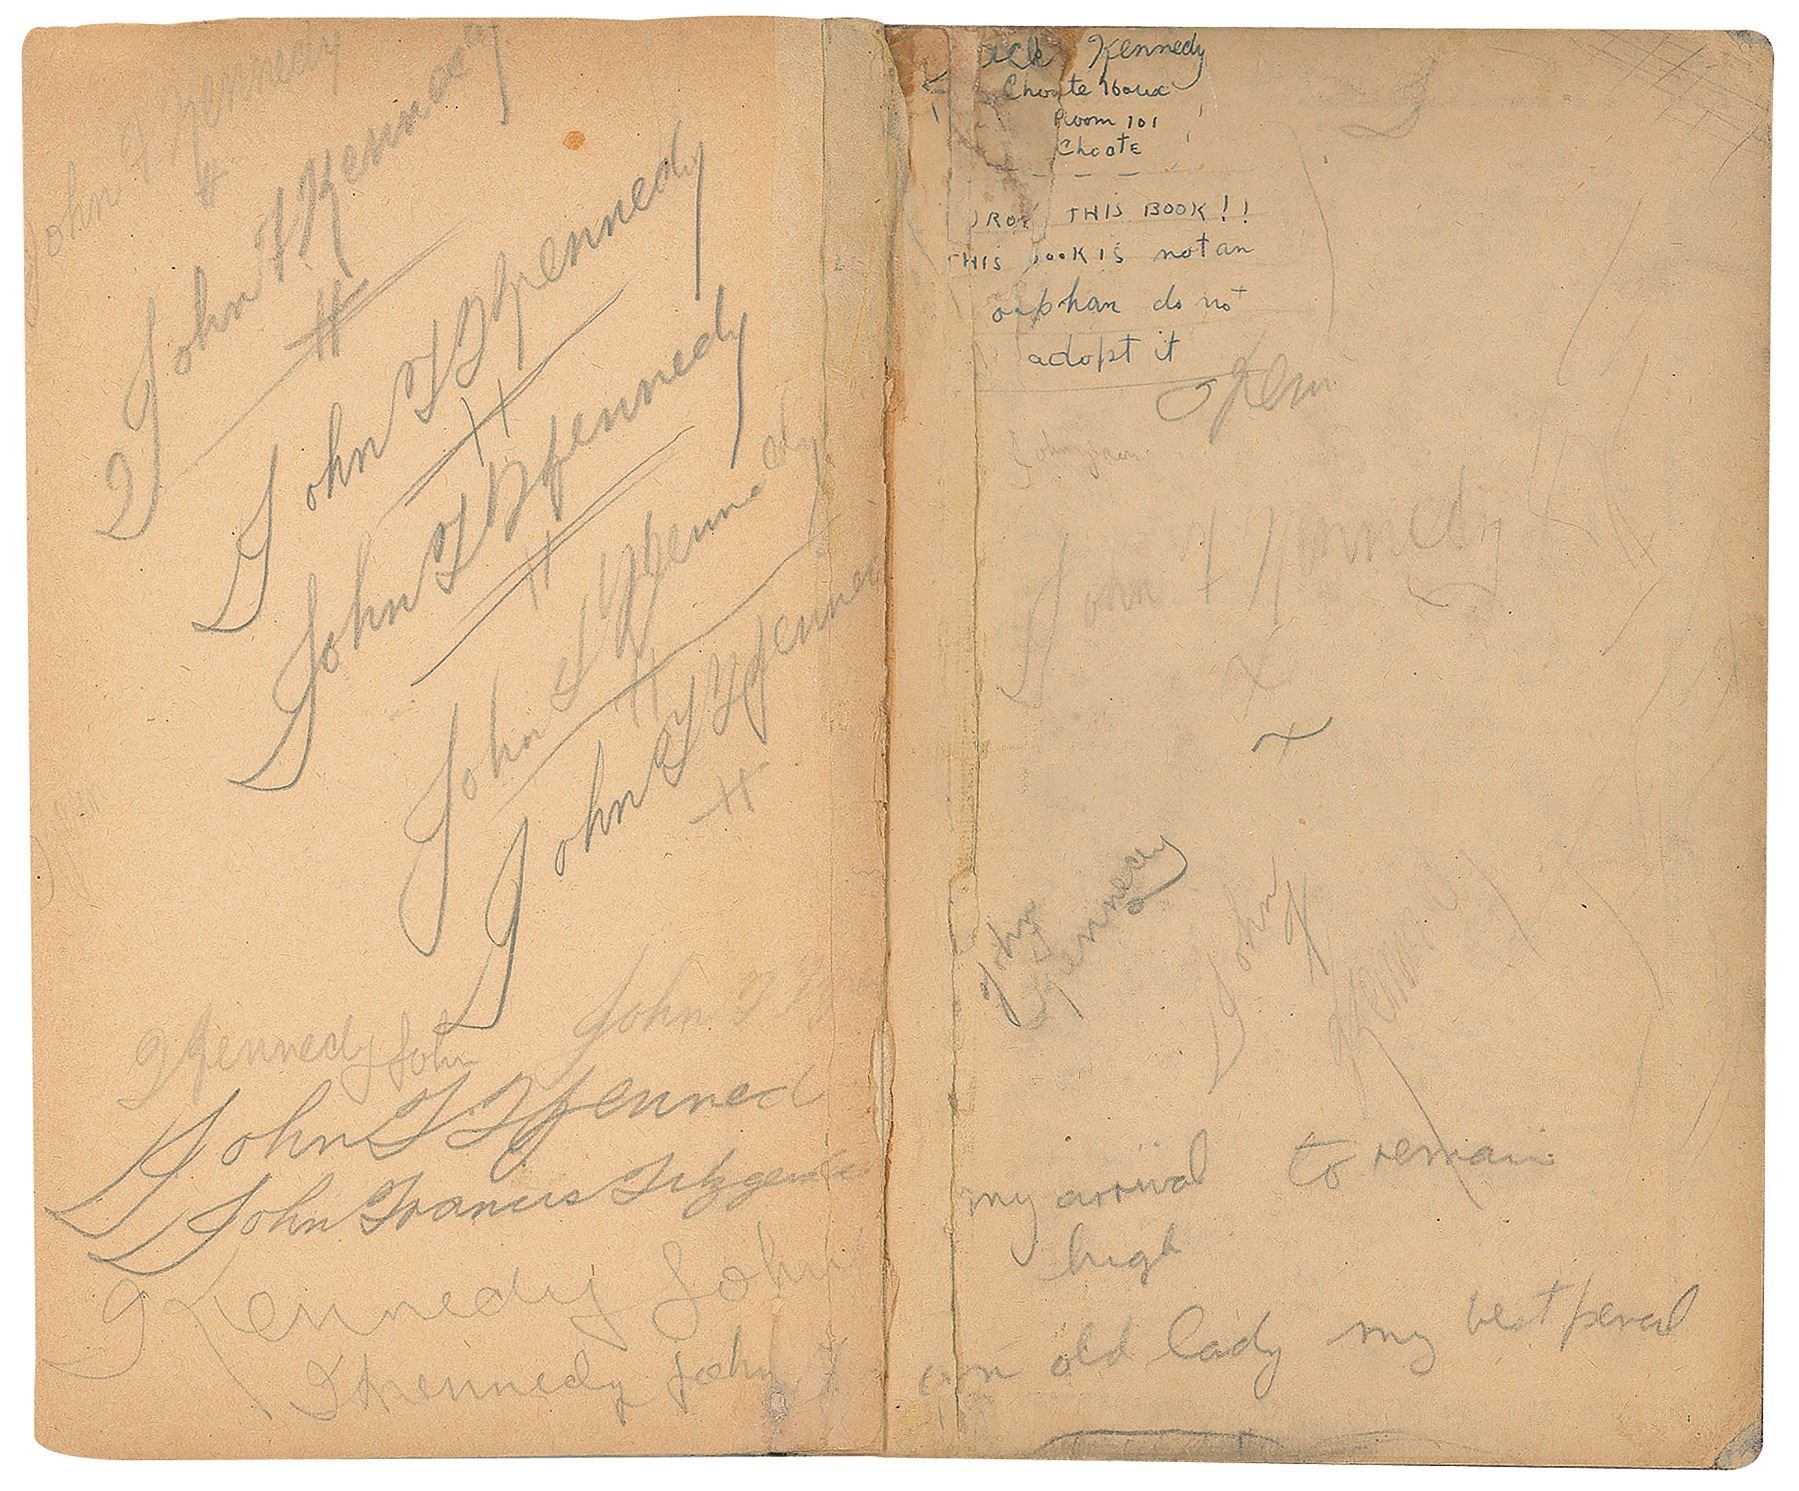 John F Kennedy
John F. Kennedy
John F Kennedy
John F Kennedy
John F Kennedy
John F Kennedy
Kennedy John
John F
John F Kenned
John Francis
Kennedy John
Kennedy John
ack Kennedy
Choate House
Room 101
Choate
ROP THIS BOOK!!
THIS BOOK IS not an
orphan do not
adopt it
Ken
John F Kennedy
John
Kennedy
John F
Kennedy
my arrival to remain
high
old lady my best